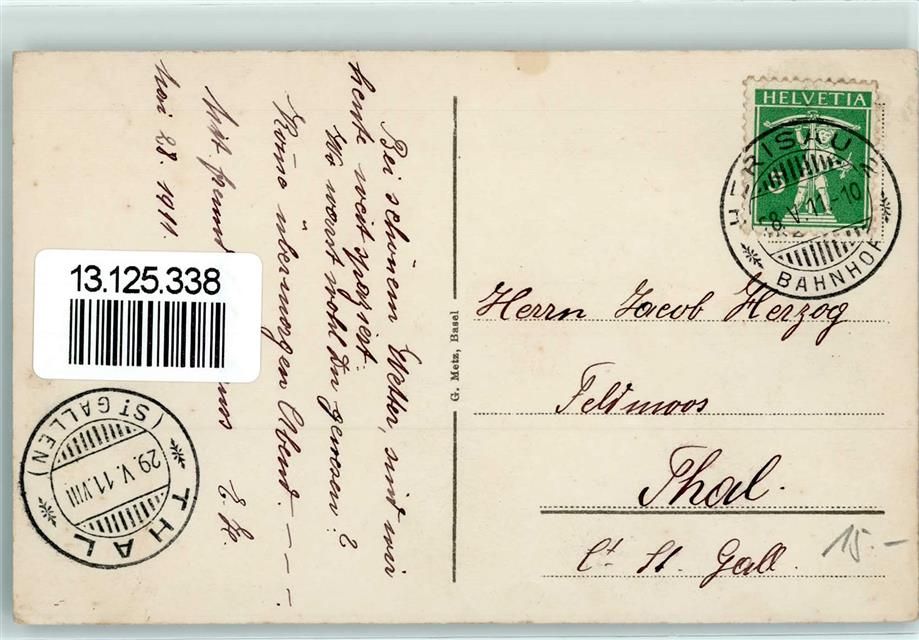 Bei schönem Wetter, sind wir
heute weit spaziert.
Wo warst wohl Du gewesen?
Komme übermorgen Abend. – – –.
Mit freundl
uss E. Hz.
Mai 28. 1911.
13.125.338
THAL
(ST GALLEN)
29.V.11.VIII
G. Metz, Basel
HELVETIA
HERISAU
28.V.11-10
BAHNHOF
Herrn Jacob Herzog
Feldmoos
Thal.
Ct. St. Gall.
15.-